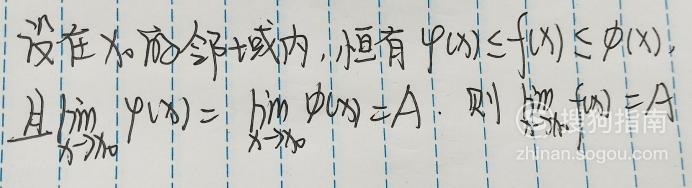 设在x₀的邻域内,恒有φ(x)≤f(x)≤ϕ(x),
且lim x→x₀ φ(x)= lim x→x₀ ϕ(x)=A. 则 lim x→x₀ f(x)=A
搜狗指南
zhinan.sogou.com